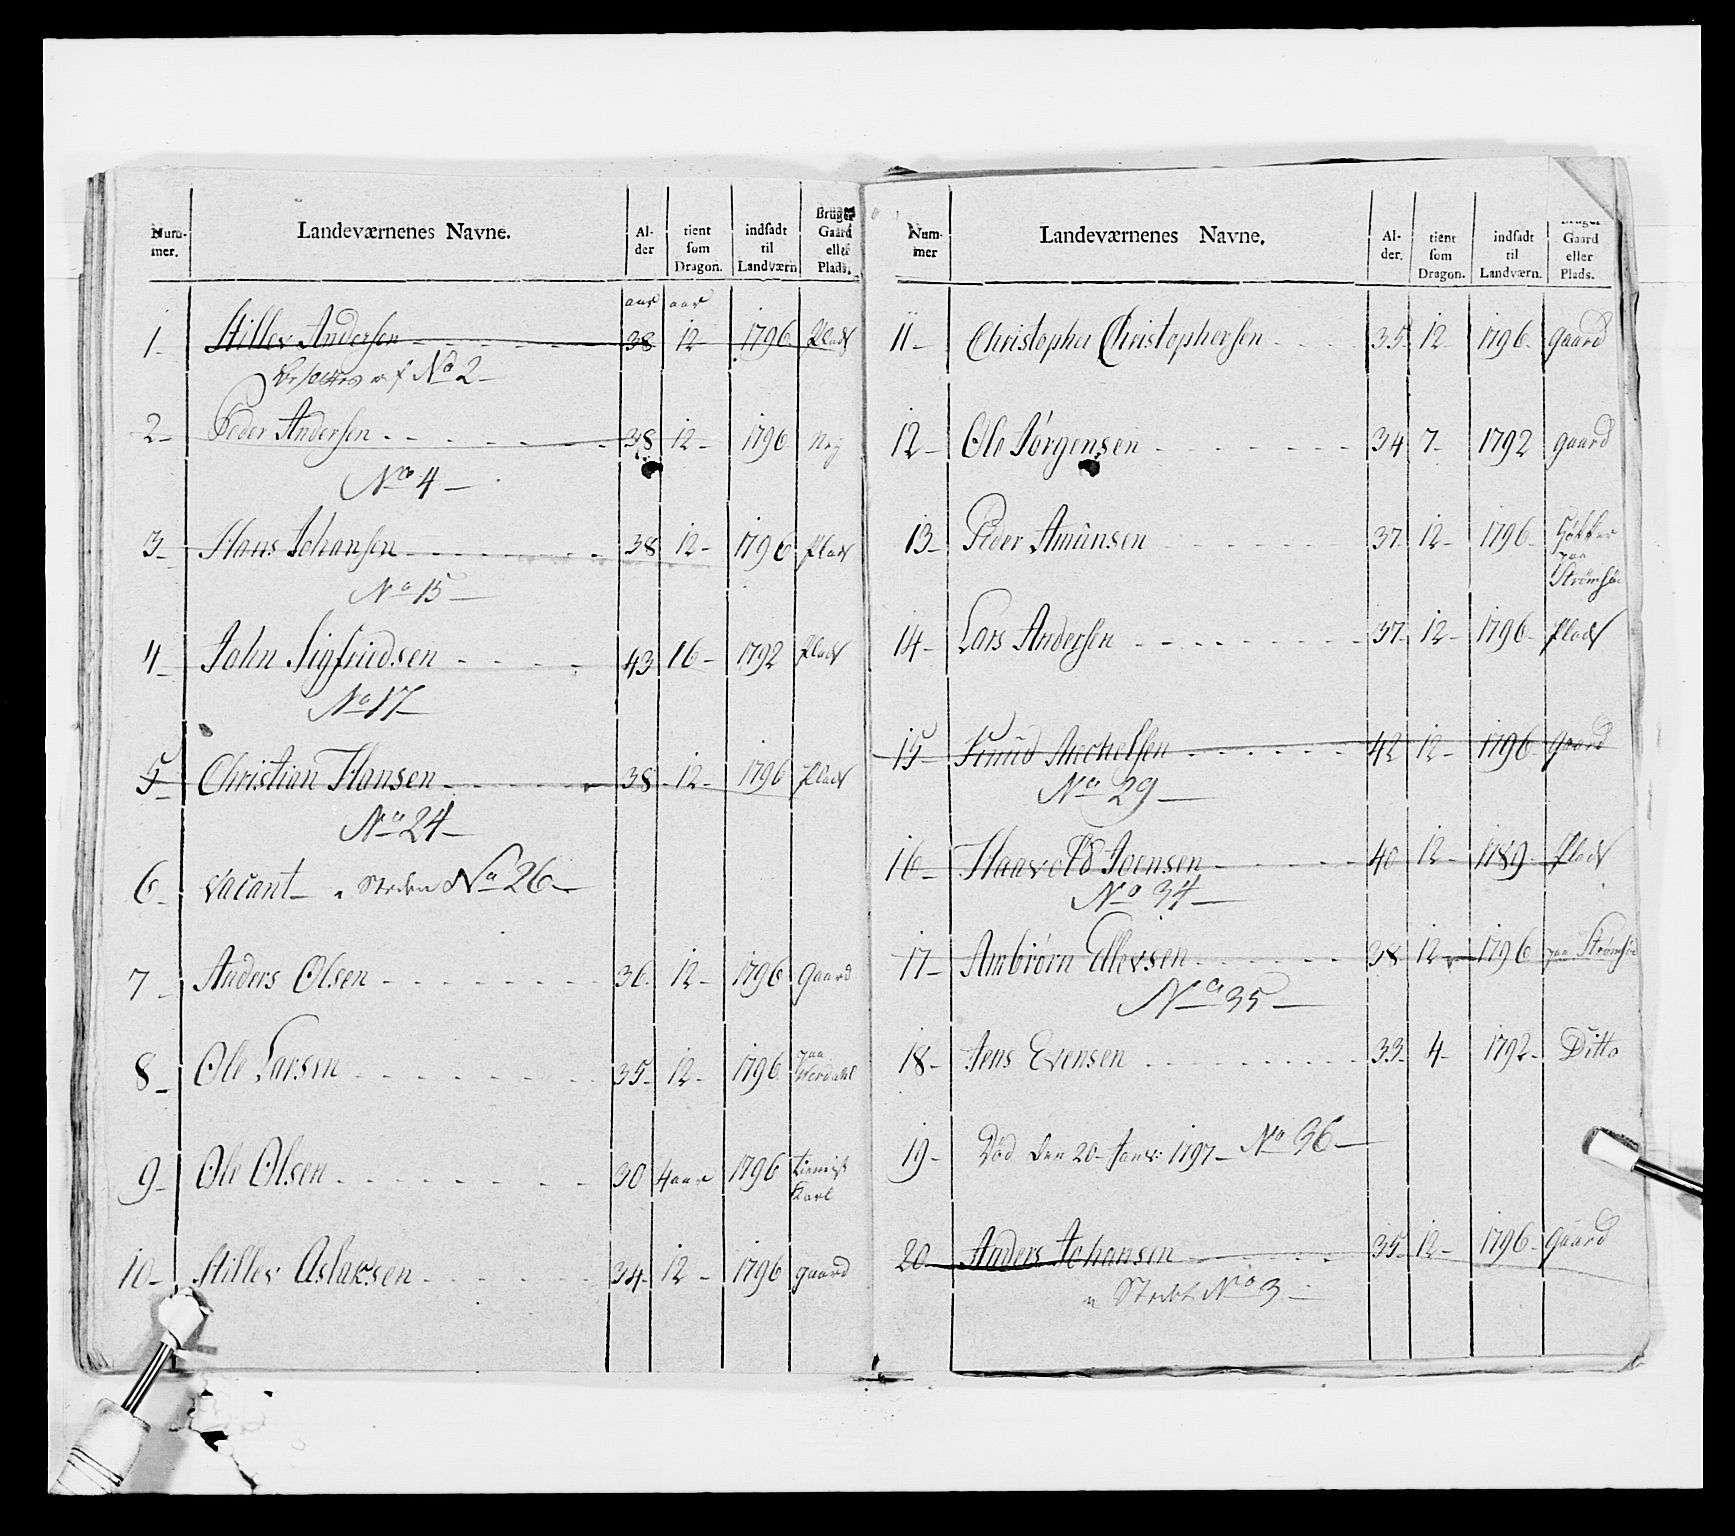 Num-mer. Landeværnenes Navne. Al-der tient som Dragon. indsadt til Landværn Brüger Gaard eller Plads.
aar aar
1 Stillev Andersen 38 12 1796 Plads
No 2
2 Peder Andersen 38 12 1796 Nej
No 4
3 Hans Johansen 38 12 1796 Plads
No 15
4 John Sigfriedsen 43 16 1792 Plads
No 17
5 Christian Hansen 38 12 1796 Plads
No 24
6 vacant No 26
7 Anders Olsen 36 12 1796 Gaard
8 Ole Larsen 35 12 1796 paa
9 Ole Olsen 30 4 aar 1796 tienist
Karl
10 Stillev Aslaksen 34 12 1796 gaard
Num-mer Landeværnenes Navne. Al-der. tient som Dragon. indsadt til Landværn. Brüger Gaard eller Plads.
11 Christopher Christophersen 35 12 1796 Gaard
12 Ole Jørgensen 34 7 1792 gaard
13 Peder Amünsen 37 12 1796
paa
Strømsøe
14 Lars Andersen 37 12 1796 Plads
15 Knud Michelsen 42 12 1796 gaard
No 29
16 Haavold Joensen 40 12 1789 Plads
No 34
17 Ambiørn Ellevsen 38 12 1796 paa Strømsøe
No 35
18 Jens Evensen 33 4 1792 Ditto
19 Død den 20 Janv: 1797 No 36
20 Anders Johansen 35 12 1796 Gaard
No 3